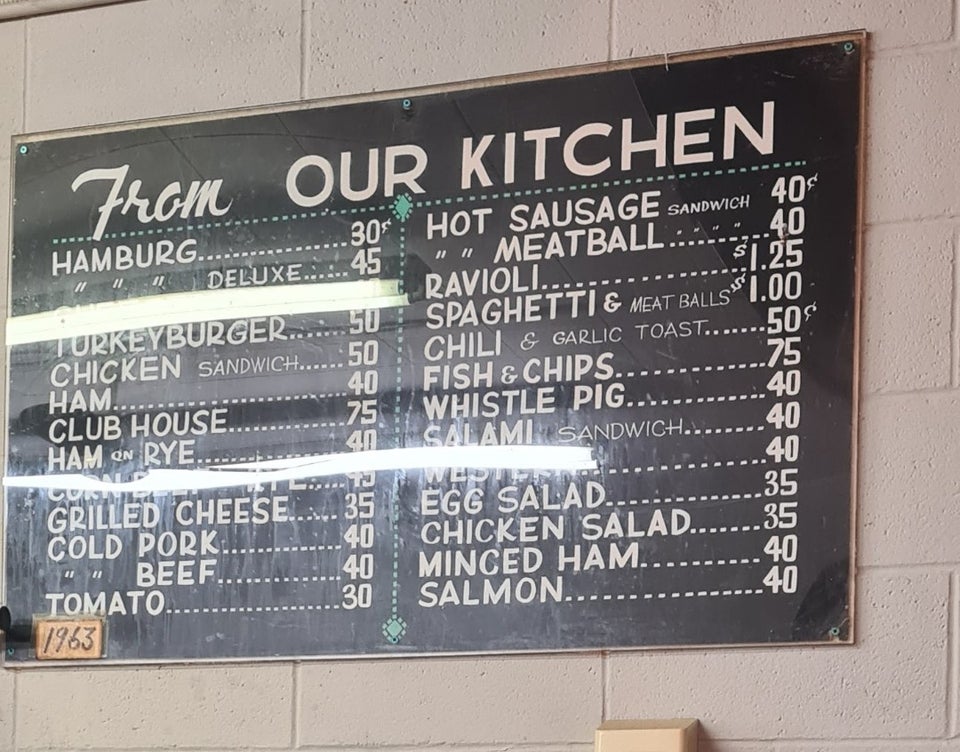 From OUR KITCHEN
HAMBURG..................30¢
" " " DELUXE.......45
TURKEYBURGER.......50
CHICKEN SANDWICH......50
HAM..............................40
CLUB HOUSE...............75
HAM ON RYE..................40
45
GRILLED CHEESE......35
COLD PORK................40
" " BEEF................40
TOMATO......................30
HOT SAUSAGE SANDWICH 40¢
" " MEATBALL....." " ".....40
RAVIOLI.........................$1.25
SPAGHETTI & MEAT BALLS $1.00
CHILI & GARLIC TOAST.......50¢
FISH & CHIPS................75
WHISTLE PIG................40
SALAMI SANDWICH.........40
WESTERN.....................40
EGG SALAD..................35
CHICKEN SALAD.......35
MINCED HAM............40
SALMON......................40
1963